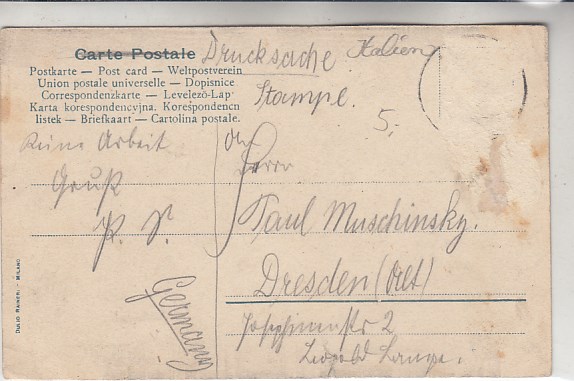 Carte Postale
Drucksache.
Italien
Postkarte — Post card — Weltpostverein
Union postale universelle — Dopisnice
Correspondenzkarte — Levelező-Lap
Karta korespondencyjna. Korešpondencn
listek — Briefkaart — Cartolina postale.
Stampe.
5,-
Keine Arbeit
Gruß
P. P.
Germany
An
Herrn
Paul Muschinsky.
Dresden
Josephinenstr 2
Leopold Lange.
DUILIO RAINERI - MILANO